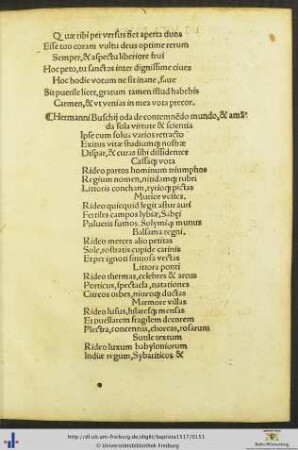 Quæ tibi per versus fiet aperta duos
Esse tuo coram vultu deus optime rerum
Semper, & aspectu liberiore frui
Hoc peto, tu sanctos inter dignissime ciues
Hoc hodie votum ne sit inane, faue
Sit puerile licet, gratum tamen istud habebis
Carmen, & vt venias in mea vota precor.
¶Hermanni Buschij oda de contemnēdo mundo, & amā
da sola virtute & scientia
Ipse cum solus varios retracto
Exitus vitæ studiumq; nostræ
Dispar, & curas sibi dissidentes
Cassaq; vota
Rideo partos hominum triumphos
Regium nomen, nitidamq; rubri
Littoris concham, tyrioq; pictas
Murice vestes.
Rideo quicquid legit astur auri
Fertiles campos lybiæ, Sabęi
Pulueris fumos. Solymiq; munus
Balsama regni,
Rideo meters alto petitas
Sole, rostratis cupide carinis
Et per ignoti sinuosa vectas
Littora ponti
Rideo thermas, celebres & arcus
Porticus, spectacla, natationes
Citreos orbes, niueoq; ductas
Marmore villas
Rideo lusus, hilaresq; mensas
Et puellarem fragilem decorem
Plectra, concentus, choreas, rosarum
Sutile textum
Rideo luxum babyloniorum
Indiæ regum, Sybariticos &
http://dl.ub.uni-freiburg.de/diglit/baptista1517/0151
© Universitätsbibliothek Freiburg
Baden-Württemberg